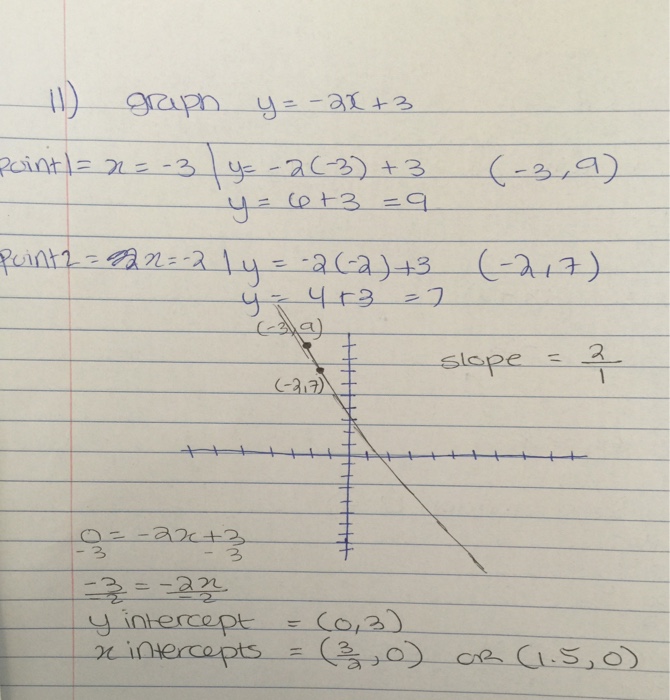 11) graph y = -2x + 3
point 1 = x = -3 | y = -2(-3) + 3 (-3, 9)
y = 6 + 3 = 9
point 2 = x = -2 | y = -2(-2) + 3 (-2, 7)
y = 4 + 3 = 7
(-3, 9)
slope = 2/1
(-2, 7)
0 = -2x + 3
-3 -3
-3/-2 = -2x/-2
y intercept = (0, 3)
x intercepts = (3/2, 0) OR (1.5, 0)